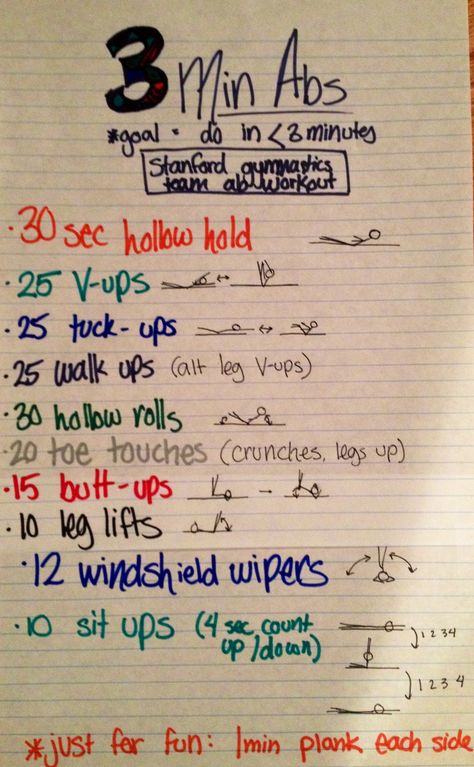 3 Min Abs
*goal = do in < 3 minutes
Stanford gymnastics
team ab workout
• 30 sec hollow hold
• 25 V-ups
• 25 tuck-ups
• 25 walk ups (alt leg V-ups)
• 30 hollow rolls
• 20 toe touches (crunches, legs up)
• 15 butt-ups
• 10 leg lifts
• 12 windshield wipers
• 10 sit ups (4 sec count
up/down)
1 2 3 4
1 2 3 4
*just for fun: 1min plank each side